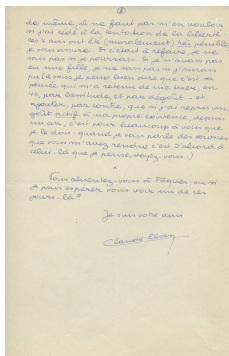 ②
de même, il ne faut pas m'en vouloir
si j'ai cédé à la tentation de la liberté :
ces 4 ans ont été (moralement) très pénibles,
je vous assure. Si c'était à refaire je ne
sais pas si je pourrais. Si je n'avais pas
eu ma fille, je ne sais pas si j'aurais
pu (à vous je peux bien dire que c'est la
pensée qui m'a retenu de me tuer, en
40, par lassitude, et par dégoût - et
ajouter, par contre, que si j'ai repris un
goût actif à ma propre existence, depuis
un an, c'est pour beaucoup à vous que
je le dois : quand je vous parle des services
que vous m'avez rendus, c'est d'abord à
celui-là que je pense, voyez-vous.)
*
Vous absentez-vous à Pâques, ou si
je puis espérer vous voir un de ces
jours-là ?
Je suis votre ami
Claude Elsen